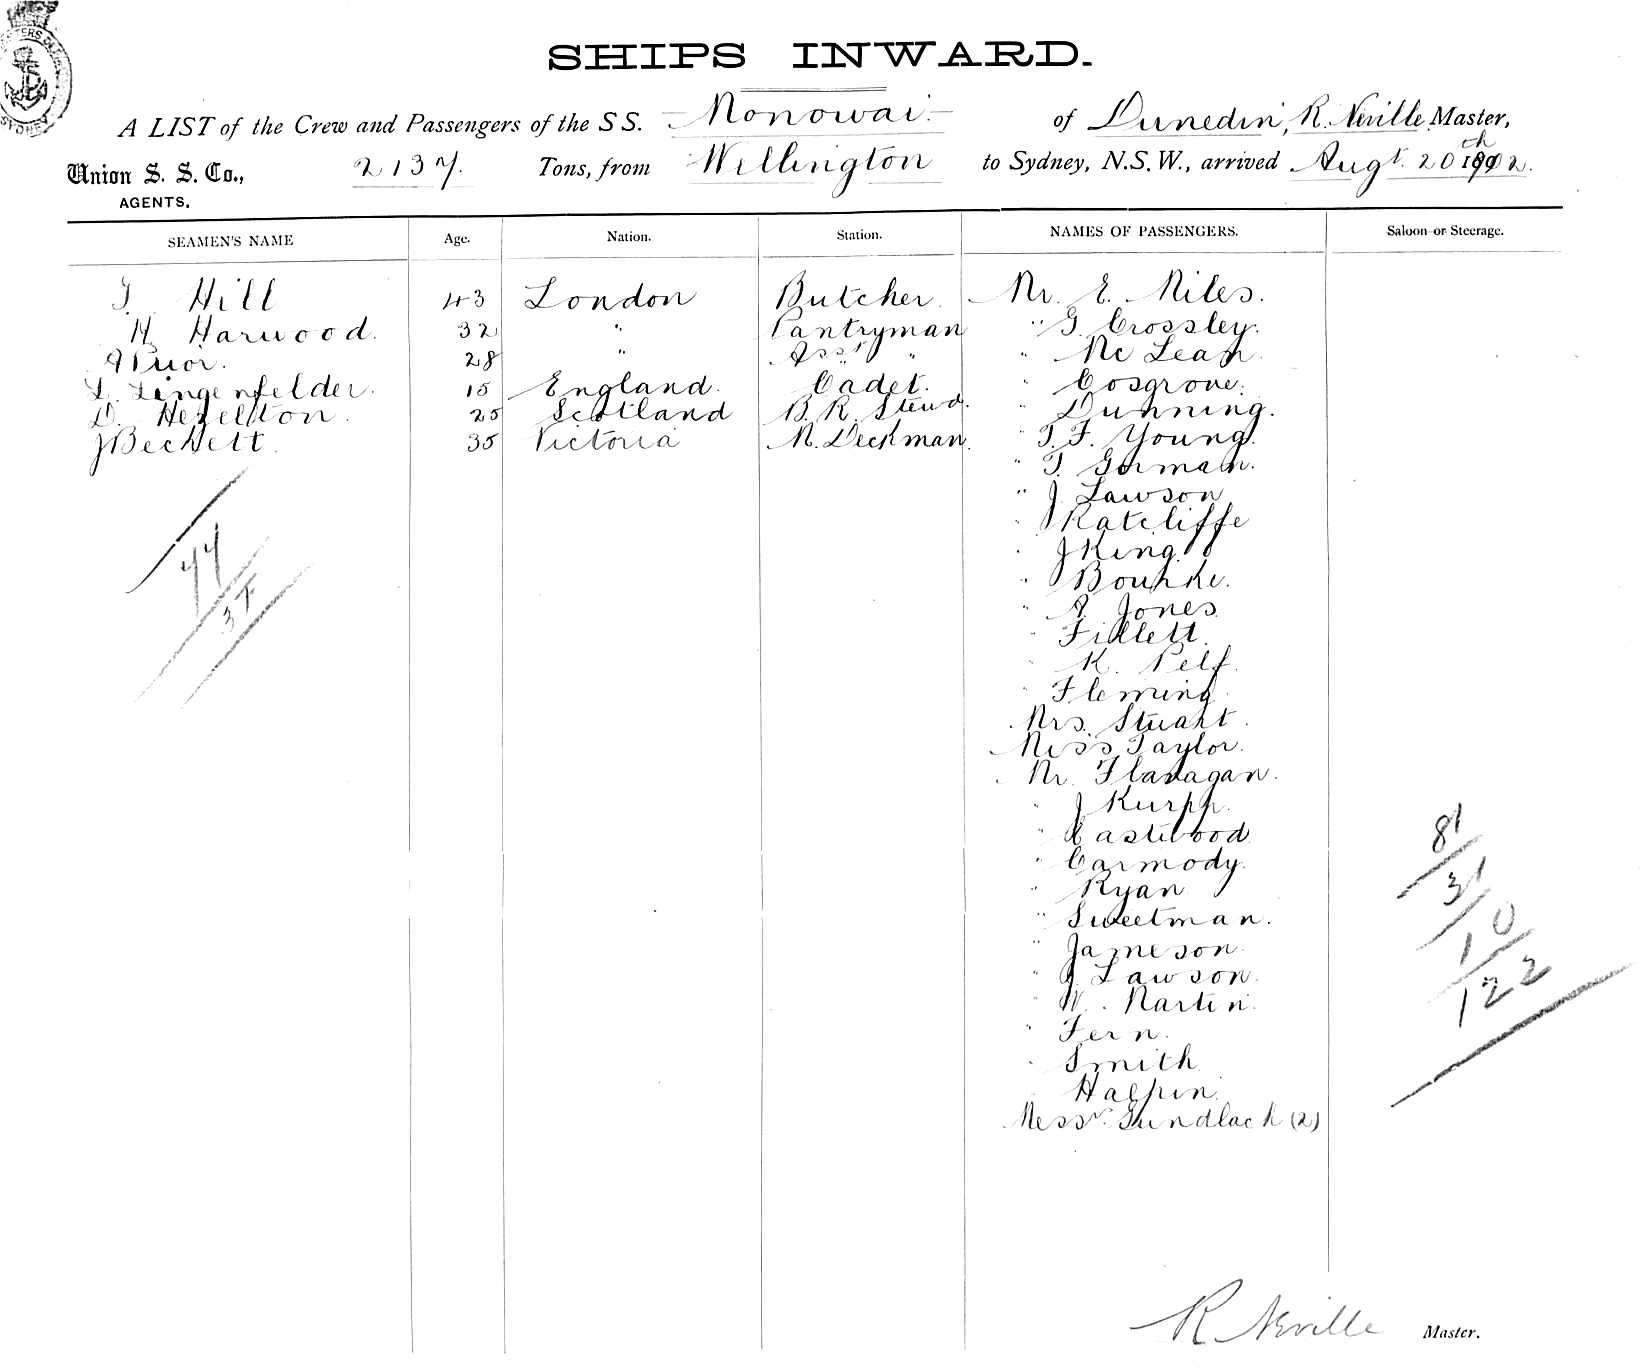 SHIPS INWARD.
A LIST of the Crew and Passengers of the SS. Monowai of Dunedin, R. Neville Master,
Union S. S. Co., 2137. Tons, from Wellington to Sydney, N.S.W., arrived Augt. 20th 1902.
AGENTS.
SEAMEN'S NAME Age. Nation. Station. NAMES OF PASSENGERS. Saloon or Steerage.
T. Hill 43 London Butcher. Mr. E. Miles.
H Harwood. 32 " Pantryman " G. Crossley.
A Prior. 28 " Asst " " Mc Lean.
L. Lingenfelder. 15 England. Cadet. " Cosgrove.
D. Hezelton. 25 Scotland B. R. Stewd. " Dunning.
J Beckett. 35 Victoria M. Deckman. " T. F. Young.
" T. Gorman.
" J. Lawson
" J Ratcliffe
" J King
" J Bourke.
" A. Jones
" Fillett.
" K. Pelf.
" Fleming
Mrs. Stuart.
Miss Taylor.
Mr. Flanagan.
" J Kurpp.
" Eastwood
" Carmody.
" Ryan
" Sweetman.
" Jameson.
" J. Lawson.
" W. Martin.
" Fern.
" Smith
" Halpin.
Messrs. Gundlach (2)
44
3F
81
31
10
122
R Neville Master.
SYDNEY